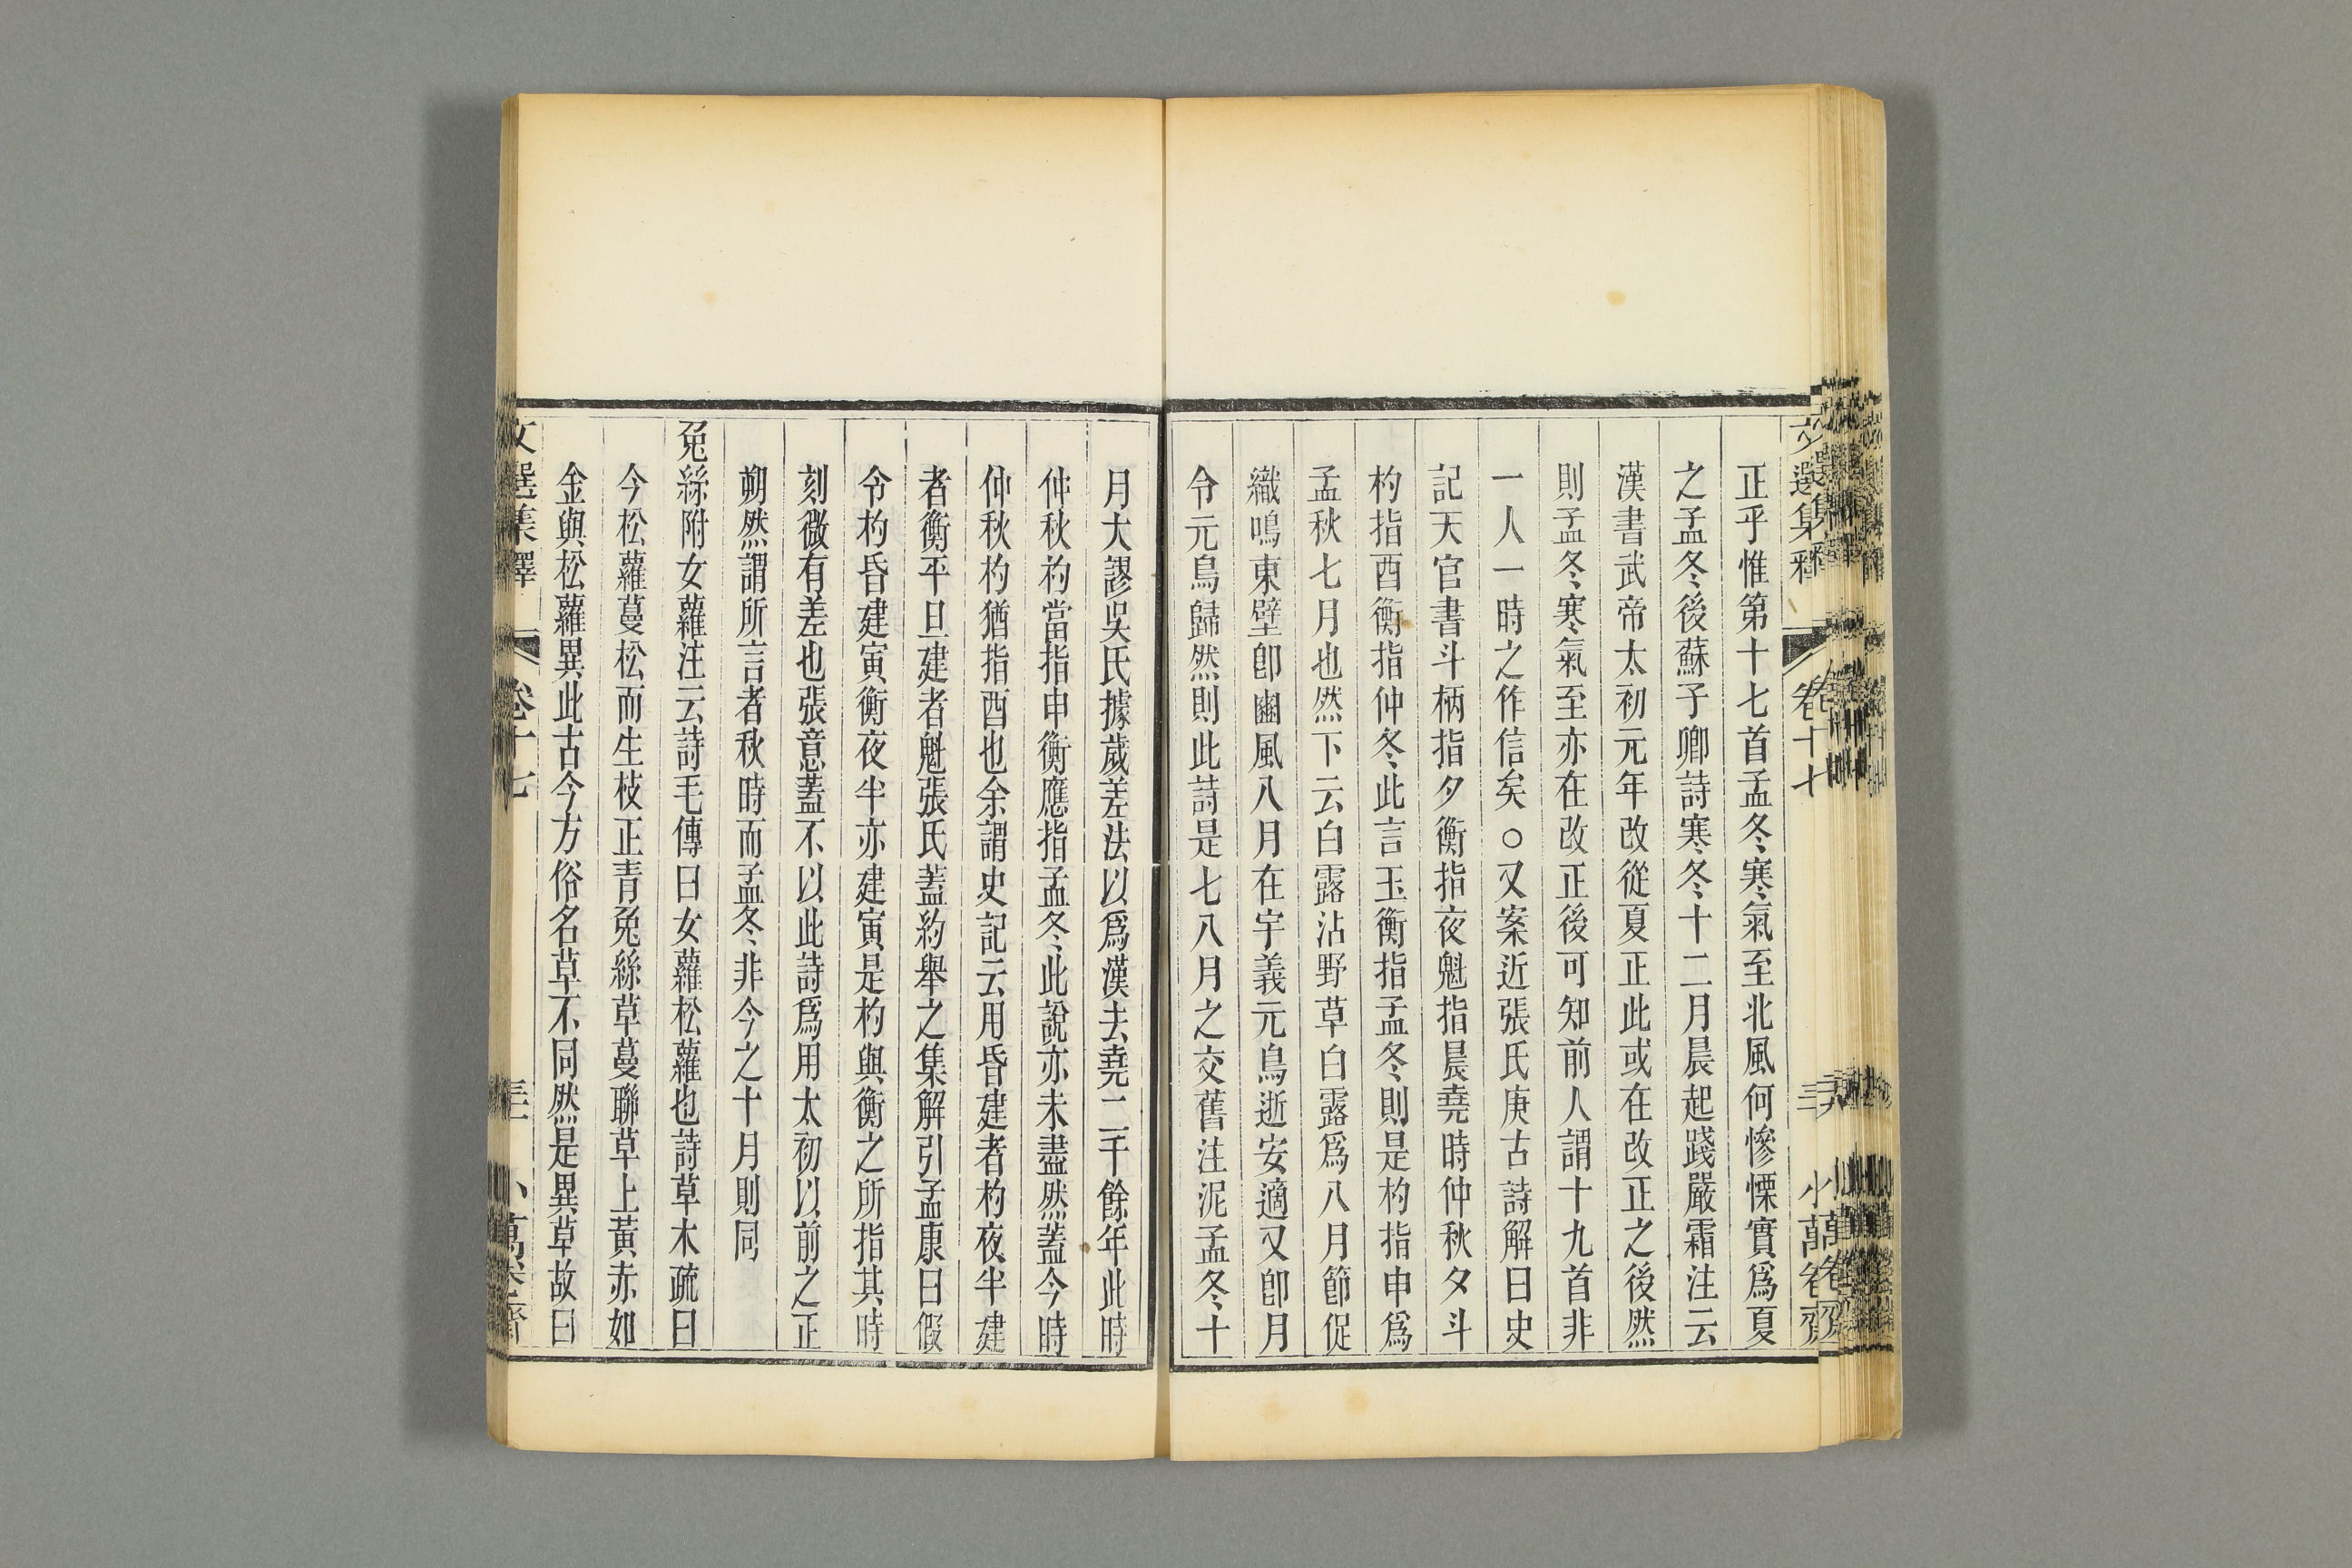 文選集釋 卷十七 小萬卷齋
正乎惟第十七首孟冬寒氣至北風何慘慄實爲夏
之孟冬後蘇子卿詩寒冬十二月晨起踐嚴霜注云
漢書武帝太初元年改從夏正此或在改正之後然
則孟冬寒氣至亦在改正後可知前人謂十九首非
一人一時之作信矣○又案近張氏庚古詩解曰史
記天官書斗柄指夕衡指夜魁指晨堯時仲秋夕斗
杓指酉衡指仲冬此言玉衡指孟冬則是杓指申爲
孟秋七月也然下云白露沾野草白露爲八月節促
織鳴東壁卽豳風八月在宇義元鳥逝安適又卽月
令元鳥歸然則此詩是七八月之交舊注泥孟冬十
月大謬吳氏據歲差法以爲漢去堯二千餘年此時
仲秋杓當指申衡應指孟冬此說亦未盡然蓋今時
仲秋杓猶指酉也余謂史記云用昏建者杓夜半建
者衡平旦建者魁張氏蓋約舉之集解引孟康曰假
令杓昏建寅衡夜半亦建寅是杓與衡之所指其時
刻微有差也張意蓋不以此詩爲用太初以前之正
朔然謂所言者秋時而孟冬非今之十月則同
兔絲附女蘿注云詩毛傳曰女蘿松蘿也詩草木疏曰
今松蘿蔓松而生枝正青兔絲草蔓聯草上黃赤如
金與松蘿異此古今方俗名草不同然是異草故曰
文選集釋 卷十七 小萬卷齋